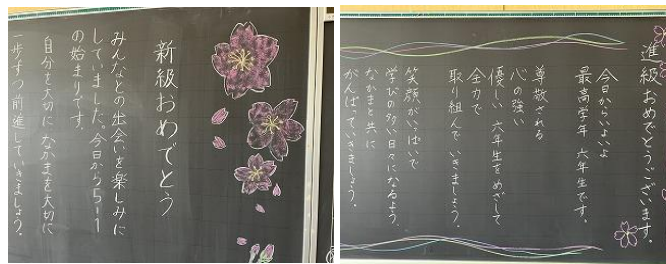 新級おめでとう
みんなとの出会いを楽しみに
していました。今日から5-1
の始まりです。
自分を大切に なかまを大切に
一歩ずつ前進していきましょう。
進級おめでとうございます。
今日からいよいよ
最高学年 六年生です。
尊敬される
心の強い
優しい 六年生をめざして
全力で
取り組んで いきましょう。
笑顔がいっぱいで
学びの多い日々になるよう
なかまと共に
がんばっていきましょう。